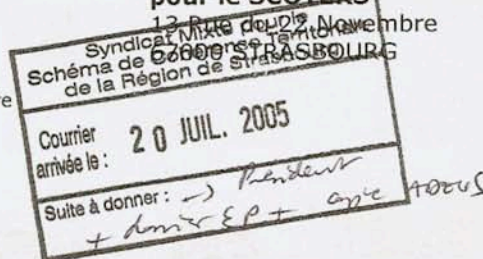 pour le SCOTERS
13 Rue du 22 Novembre
67000 STRASBOURG
Syndicat Mixte pour le
Schéma de Cohérence Territoriale
de la Région de Strasbourg
re
Courrier
arrivée le : 20 JUIL. 2005
Suite à donner : → Président
+ dossier EP + copie ADEUS